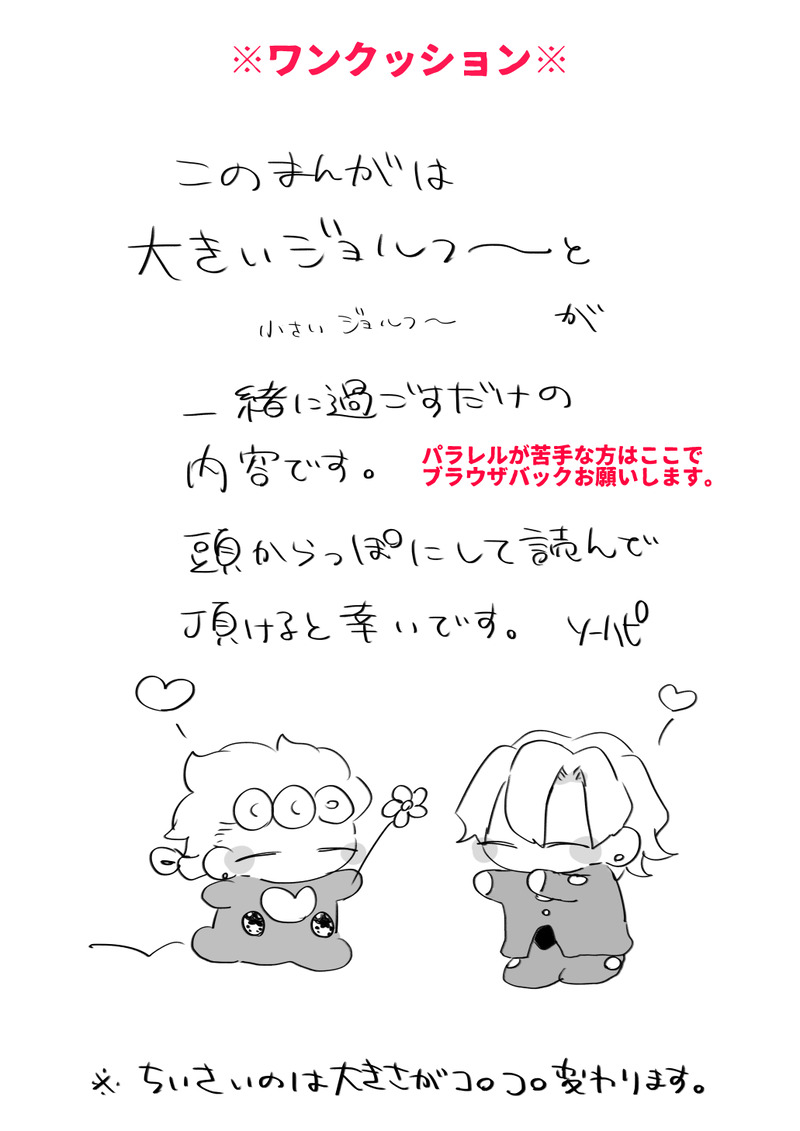 ※ワンクッション※
このまんがは
大きいジョルノ〜と
小さいジョルノ〜 が
一緒に過ごすだけの
内容です。
パラレルが苦手な方はここで
ブラウザバックお願いします。
頭からっぽにして読んで
頂けると幸いです。 ソーハピ
※ ちいさいのは大きさがコロコロ変わります。